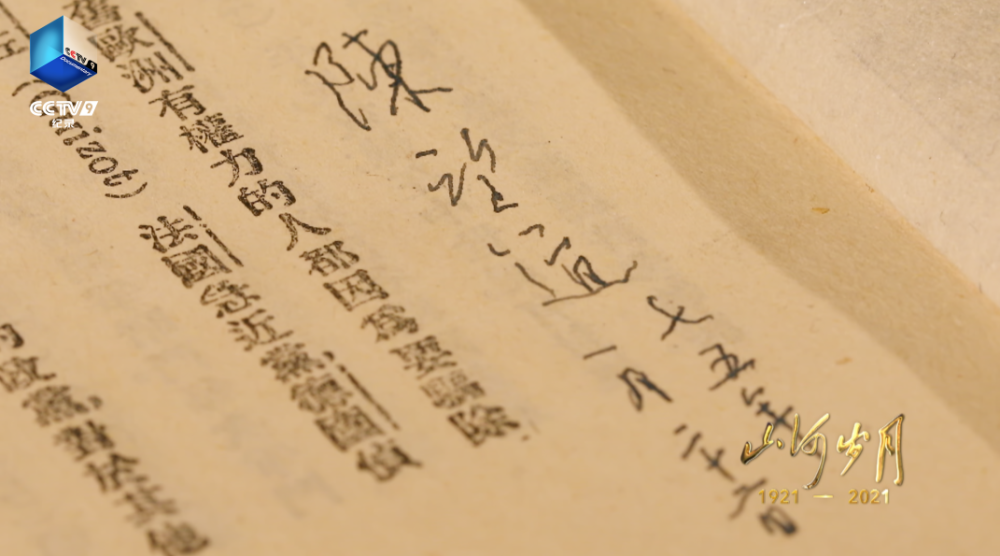 陳望道
七五年
一月二十六日
舊歐洲有權力的人都因為要驅除
(Guizot) 法國急近黨，德國偵
的政黨，對於其他
CCTV 9
Documentary
CCTV9
纪录
山河岁月
1921 — 2021